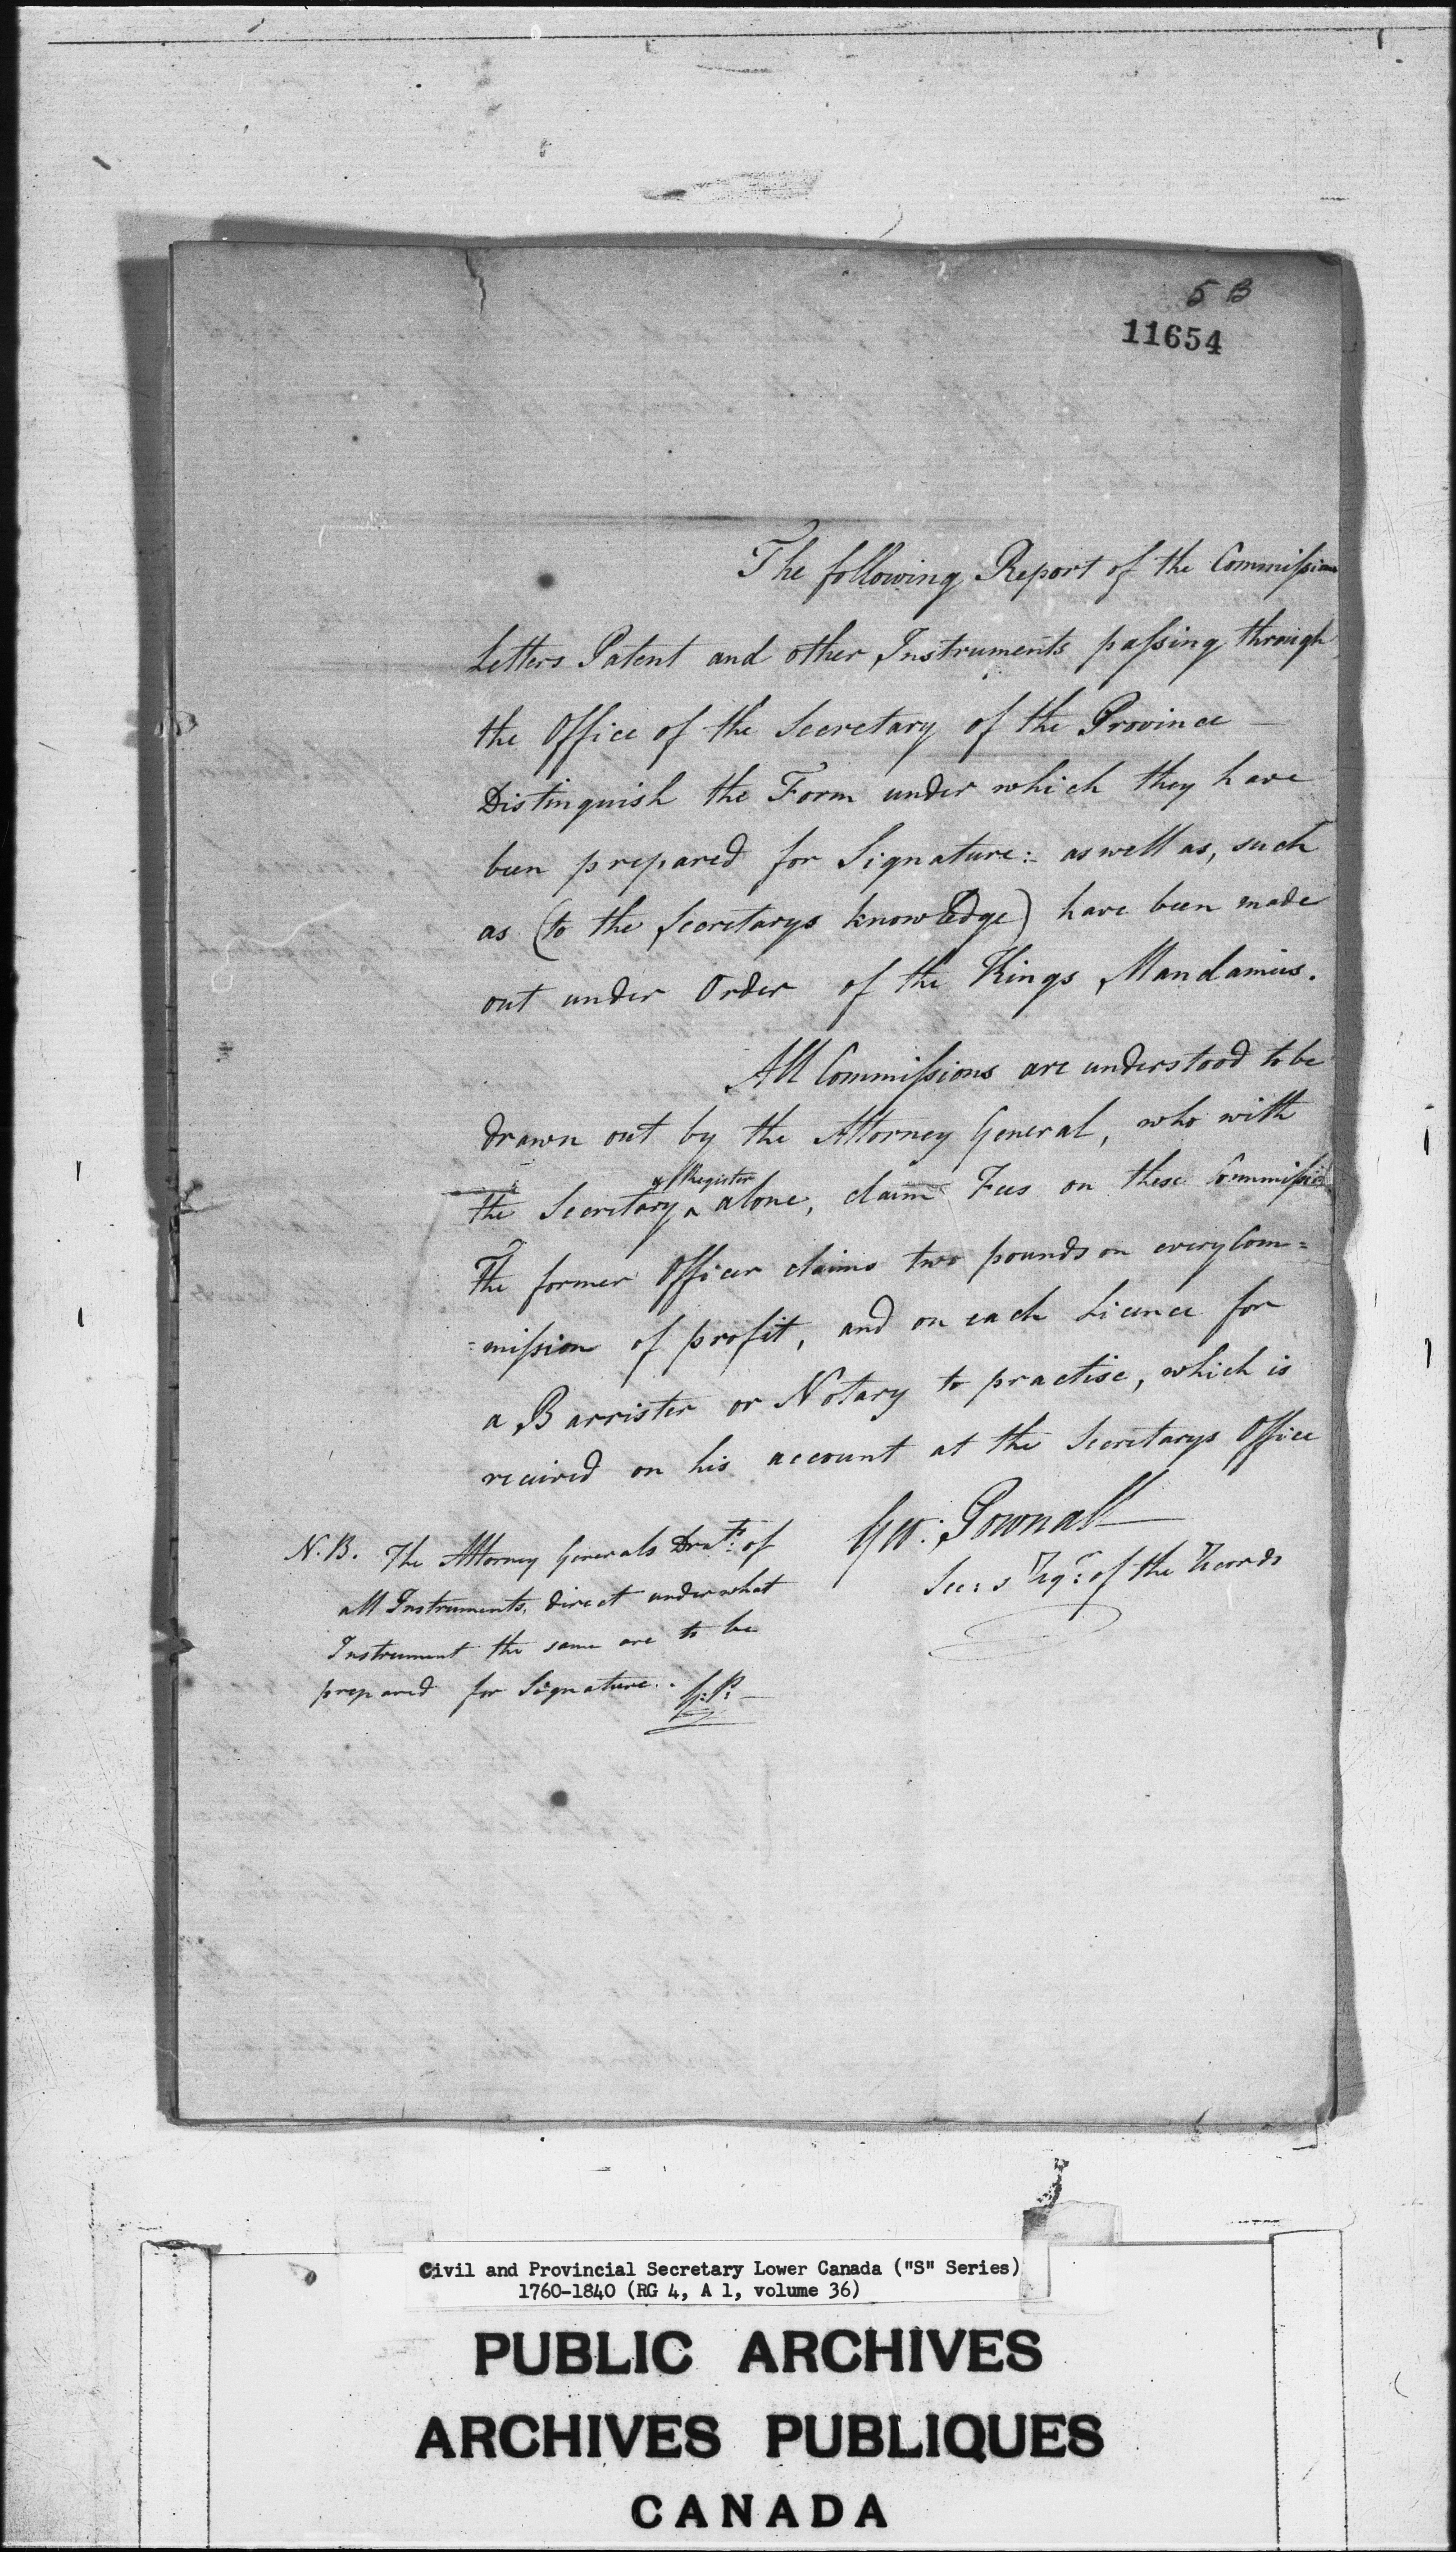 5 B
11654
The following Report of the Commissions
Letters Patent and other Instruments passing through
the Office of the Secretary of the Province —
Distinguish the Form under which they have
been prepared for Signature:- as well as, such
as (to the Secretarys knowledge) have been made
out under Order of the Kings Mandamus.
All Commissions are understood to be
drawn out by the Attorney General, who with
& Register
the Secretary ^ alone, claim Fees on these Commissions
The former Officer claims two pounds on every Com=
=mission of profit, and on each Licence for
a Barrister or Notary to practise, which is
received on his account at the Secretarys Office
Geo: Pownall
Sec: & Regr: of the Records
N.B. The Attorney Generals Drafts: of
all Instruments, direct under what
Instrument the same are to be
prepared for Signature. G:P:
Civil and Provincial Secretary Lower Canada ("S" Series)
1760-1840 (RG 4, A 1, volume 36)
PUBLIC ARCHIVES
ARCHIVES PUBLIQUES
CANADA